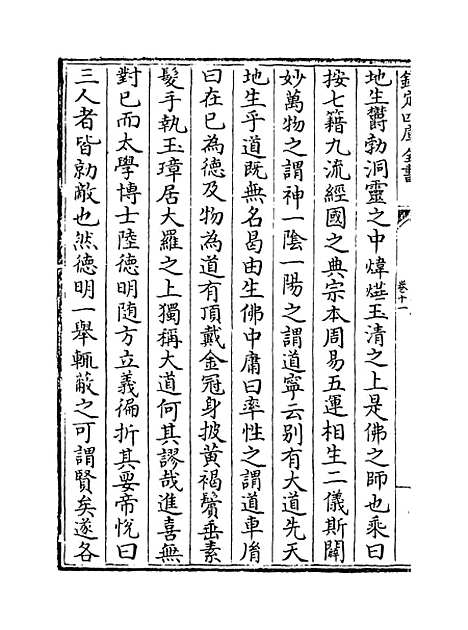 欽定四庫全書
卷十一
地生欝勃洞靈之中煒燁玉清之上是佛之師也乘曰
按七籍九流經國之典宗本周易五運相生二儀斯闢
妙萬物之謂神一陰一陽之謂道寧云别有大道先天
地生乎道既無名曷由生佛中庸曰率性之謂道車胤
曰在已為德及物為道有頂戴金冠身披黄褐鬢垂素
髮手執玉璋居大羅之上獨稱大道何其謬哉進喜無
對已而太學博士陸德明随方立義徧折其要帝悦曰
三人者皆勍敵也然德明一舉輒蔽之可謂賢矣遂各